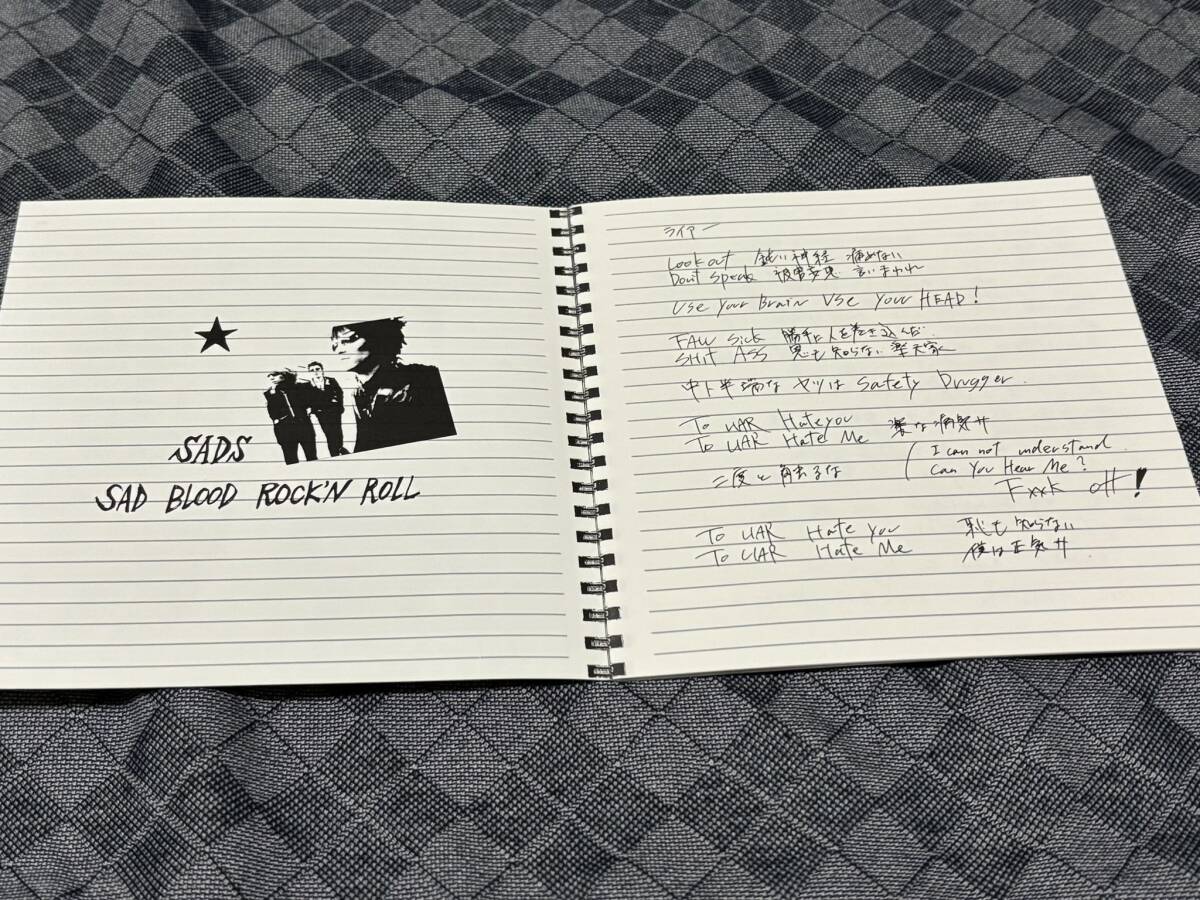 SADS
SAD BLOOD ROCK'N ROLL
ライアー
Look out 鈍い神経 痛めない
Don't speak 被害妄想 言いまわれ
Use Your Brain Use Your HEAD!
FAW Sick 勝手に人を巻き込んだ
SHIT ASS 恩も知らない 楽天家
中ト半端な ヤツは Safety Drugger.
To LIAR Hate you
To LIAR Hate Me 楽な病気サ
二度と 角去るな
(I can not understand
Can You Hear Me?
Fxxk off!
To LIAR Hate you 恥も知らない
To LIAR Hate Me 僕は正気サ